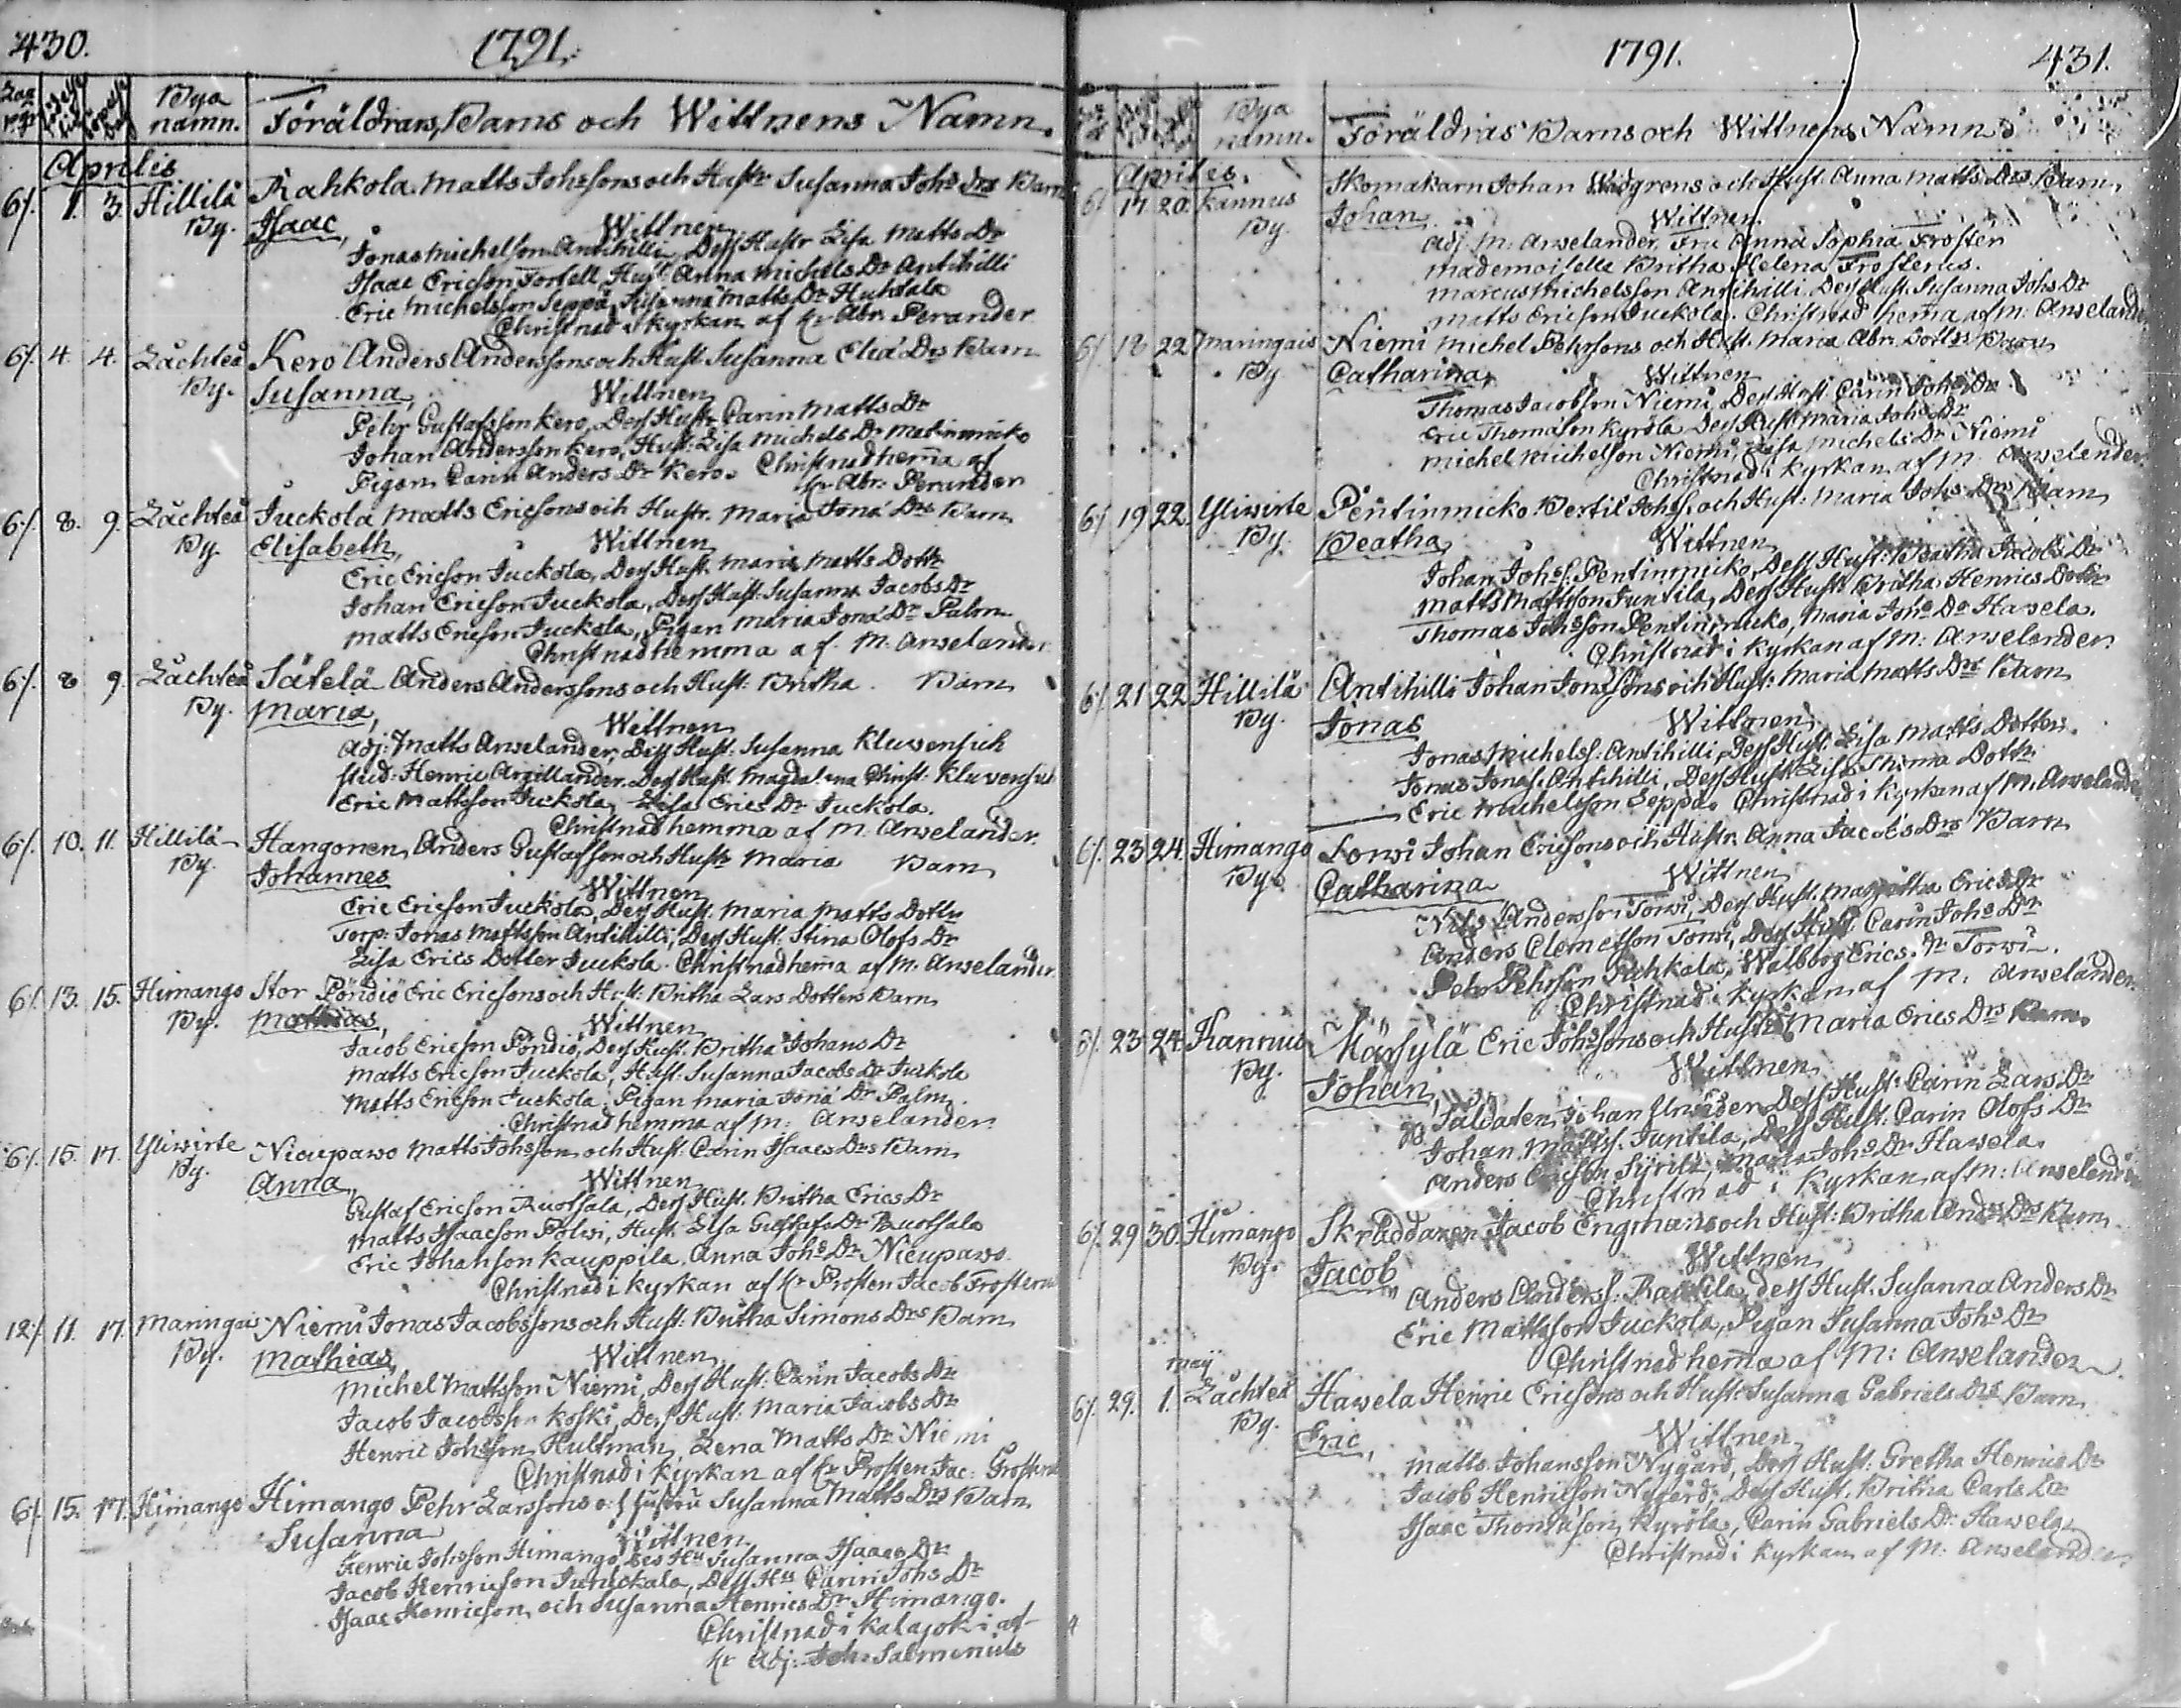 430.
1791.
Bya namn.
Föräldrars, Barns och Wittnens Namn.
Aprilis
6/. 1. 3. Hillilä By. Rahkola Matts Johssons och Hustr Susanna Johs Drs Barn
Isaac, Wittnen
Jonas Michelsson Antihilli, Dess Hustr Lisa Matts Dr
Isaac Ericson Forsell, Hust. Anna Michels Dr Antihilli
Eric Michelsson Seppä, Susanna Matts Dr Huhtala
Christnad i Kyrkan af Hr Abr. Perander
6/. 4. 4. Lächteä By. Kero Anders Anderssons och Hust. Susanna Elia Drs Barn
Susanna, Wittnen
Pehr Gustafsson Kero, Dess Hustr. Carin Matts Dr
Johan Andersson Kero, Hust. Lisa Michels Dr
Pigan Carin Anders Dr Kero. Christnad hema af
Hr Abr. Perander
6/. 8. 9. Lächteä By. Juckola Matts Ericsons och Hustr. Maria Jona Drs Barn
Elisabeth, Wittnen
Eric Ericson Juckola, Dess Hust. Maria Matts Dottr
Johan Ericson Juckola, Dess Hust: Susanna Jacobs Dr
Matts Ericson Juckola, Pigan Maria Jona Dr Palm
Christnad hemma af M. Anselander.
6/. 8 9. Lächteä By. Sätelä Anders Anderssons och Hust: Britha Barn
Maria, Wittnen
Adj: Matts Anselander, Dess Hust: Susanna Kluwensich
Stud: Henric Argillander. Dess Hust. Magdalena Christ: Kluwensich
Eric Mattsson Juckola, Lisa Erics Dr Juckola.
Christnad hemma af M. Anselander.
6/. 10. 11. Hillilä By. Hangonen Anders Gustafsson och Hustr Maria Barn
Johannes Wittnen
Eric Ericson Juckola, Dess Hust. Maria Matts Dottr
Torp: Jonas Mattsson Antihilli, Dess Hust: Stina Olofs Dr
Lisa Erics Dotter Juckola. Christnad hema af M. Anselander.
6/. 13. 15. Himango By. Stor Pöndiö Eric Ericsons och Hust: Britha Lars Dotters Barn
Mathias, Wittnen
Jacob Ericson Pöndiö, Dess Hust: Britha Johans Dr
Matts Ericson Juckola, Hust: Susanna Jacobs Dr Juckola
Matts Ericson Juckola. Pigan Maria Jona Dr Palm.
Christnad hemma af M: Anselander.
6/. 15. 17. Yliwirte By. Nicupawo Matts Johsson och Hust: Carin Isaacs Drs Barn
Anna, Wittnen
Gustaf Ericson Ruotsala, Dess Hust. Britha Erics Dr
Matts Isaacson Polwi, Hust. Lisa Gustafs Dr Ruotsala
Eric Johanson Kauppila. Anna Johs Dr Nicupawo.
Christnad i Kyrkan af Hr Prosten Jacob Frosterus
12/. 11. 17. Maringais By. Niemi Jonas Jacobssons och Hust: Britha Simons Drs Barn
Mathias, Wittnen
Michel Mattsson Niemi, Dess Hust: Carin Jacobs Dr
Jacob Jacobsson Koski, Dess Hust: Maria Jacobs Dr
Henric Johsson Hultman, Lena Matts Dr Niemi
Christnad i Kyrkan af Hr Prosten Jac:
6/. 15. 17. Himango Himango Pehr Larssons o: Hustru Susanna Matts Drs Barn
Susanna Wittnen
Henric Johsson Himango, Des Hu Susanna Isaacs Dr
Jacob Henricson Junickala, Dess Hu Carin Johs Dr
Isaac Henricson, och Susanna Henrics Dr Himango.
Christnad i Kalajoki af
Hr Adj: Joh. Salmenius
1791. 431.
Bya namn.
Föräldras Barns och Wittnens Namn
Aprilis.
6/ 17 20. Kannus By. Skomakarn Johan Wadgrens och Hust. Anna Matts Drs Barn
Johan Wittnen
Adj. M: Anselander, Fru Anna Sophia Frosten
Mademoiselle Britha Helena Frosterus.
Marcus Michelsson Antihilli Dess Hust. Susanna Johs Dr
Matts Ericson Juckola. Christnad hema af M: Anselander
6/ 18 22 Maringais By Niemi Michel Pehrsons och Hust. Maria Abr. Dotters Barn
Catharina, Wittnen
Thomas Jacobson Niemi, Dess Hust Carin Johs Dr
Eric Thomason Kyrölä Dess Hust Maria Johs Dr
Michel Michelson Niemi, Lisa Michels Dr Niemi
Christnad i Kyrkan af M. Anselander.
6/ 19 22. Yliwirte By. Pentinmicko Bertil Johss. och Hust: Maria Johs Drs Barn
Beatha Wittnen
Johan Johss: Pentinmicko, Dess Hust: Beatha Jacobs Dr
Matts Mattsson Juntila, Dess Hust: Britha Henrics Dottr
Thomas Johsson Pentinmicko, Maria Johs Dr Hawela.
Christnad i Kyrkan af M: Anselander.
6/ 21 22 Hillilä By. Antihilli Johan Jonssons och Hust: Maria Matts Drs Barn
Jonas Wittnen
Jonas Michelss: Antihilli, Dess Hust. Lisa Matts Dotter.
Jonas Jonass. Antihilli, Dess Hust. Lisa Thoma Dottr
Eric Michelsson Seppä. Christnad i Kyrkan af M. Anselander
6/. 23 24. Himango By. Torwi Johan Ericsons och Hustr. Anna Jacobs Drs Barn
Catharina Wittnen
Nils Andersson Torwi, Dess Hust. Margetha Erics Dr
Anders Clemetsson Torwi, Dess Hust. Carin Johs Dr
Pehr Pehrsson Pahkala, Walborg Erics. Dr Torwi.
Christnad i Kyrkan af M. Anselander.
6/. 23 24. Kannus By. Märsylä Eric Johssons och Hust: Maria Erics Drs Barn.
Johan, Wittnen
Saldaten Johan Dess Hust: Carin Lars Dr
Johan Mattss. Juntila, Dess Hust. Carin Olofs Dr
Anders Ericson Maria Johs Dr Hawela.
Christnad i Kyrkan af M: Anselander
6/. 29 30. Himango By. Skräddaren Jacob Engmans och Hust: Britha Anders Drs Barn
Jacob Wittnen
Anders Anderss. Raatila, dess Hust. Susanna Anders Dr
Eric Mattsson Juckola, Pigan Susanna Johs Dr
Christnad hema af M: Anselander.
Maij
6/. 29. 1. Lächteä By. Hawela Henric Ericsons och Hust: Susanna Gabriels Drs Barn
Eric, Wittnen
Matts Johansson Nygård, Dess Hust: Gretha Henrics Dr
Jacob Henricson Nygård, Dess Hust. Britha Carls Dr
Isaac Thomasson Kyrölä, Carin Gabriels Dr Hawela
Christnad i Kyrkan af M: Anselander.